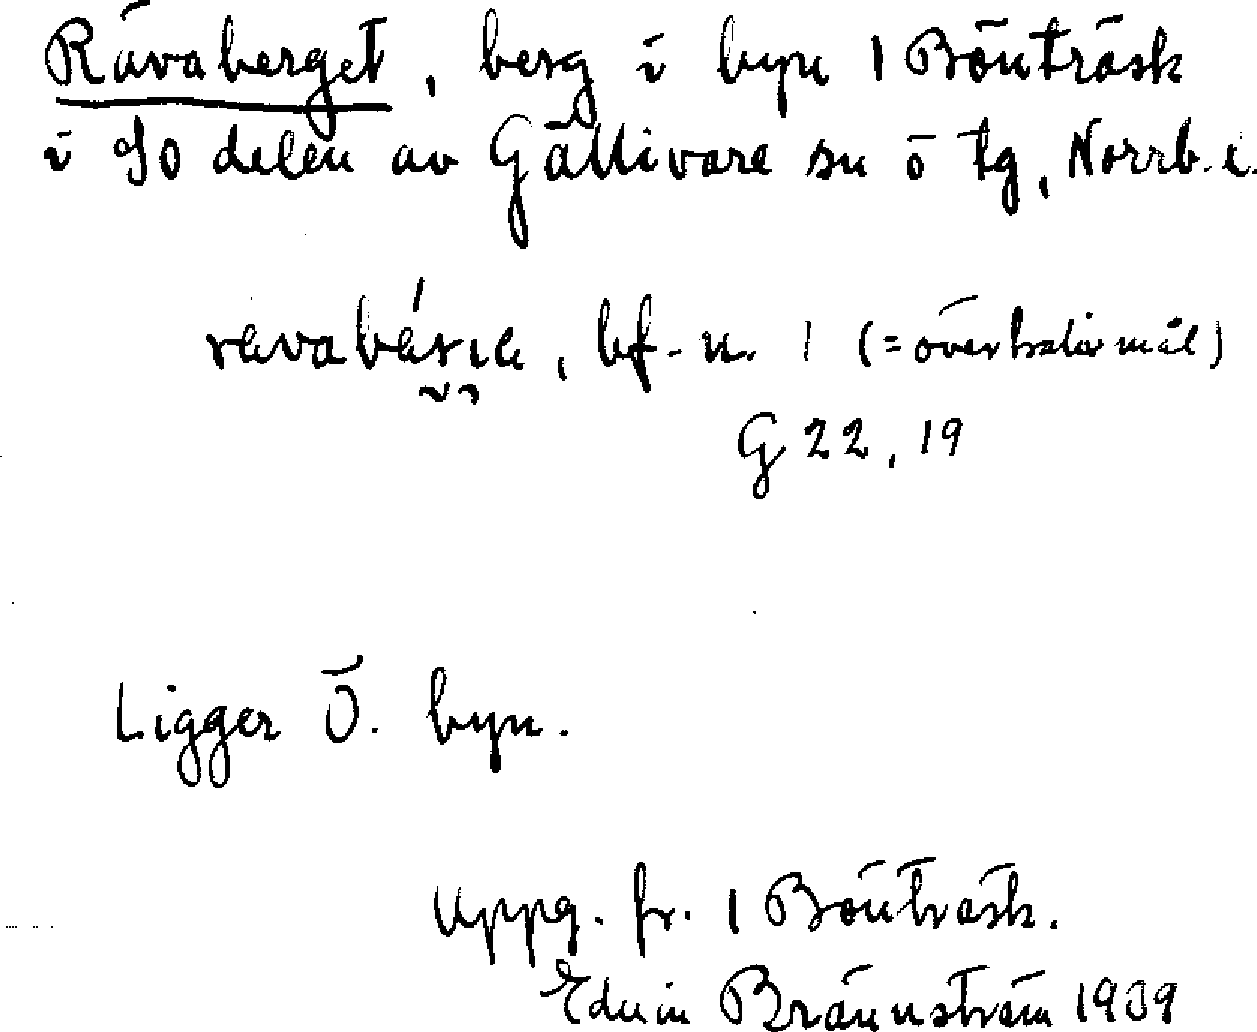 Rävaberget, berg i byn 1 Bönträsk
i SO delen av Gällivare sn o tg, Norrb. l.
bf. n. 1 (= överkalixmål)
G 22, 19
Ligger Ö. byn.
Uppg. fr. 1 Bönträsk.
Edvin Brännström 1939